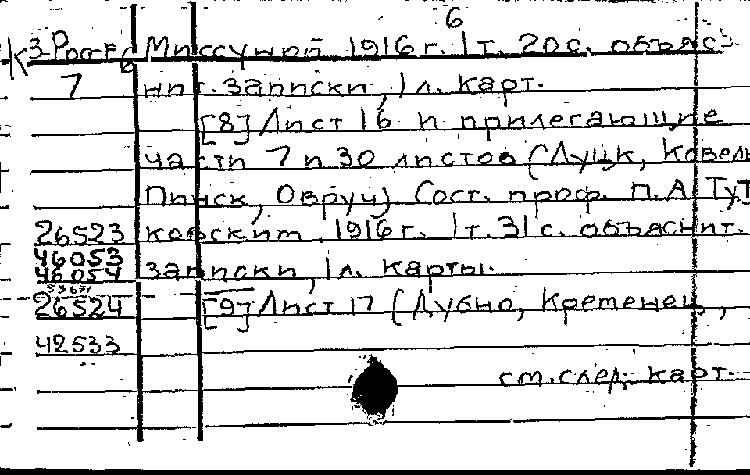 6
К 3-Росс-6 Миссуной 1916 г. 1 т. 20 с. объяс-
7 нит. записки, 1 л. карт.
[8] Лист 16 и прилегающие
части 7 и 30 листов (Луцк, Ковель
Пинск, Овруч) Сост. проф. П.А. Тут
26523 ковским. 1916 г. 1 т. 31 с. объяснит.
46053
46054 записки, 1 л. карты.
26524 [9] Лист 17 (Дубно, Кременец,
42533
см. след. карт.